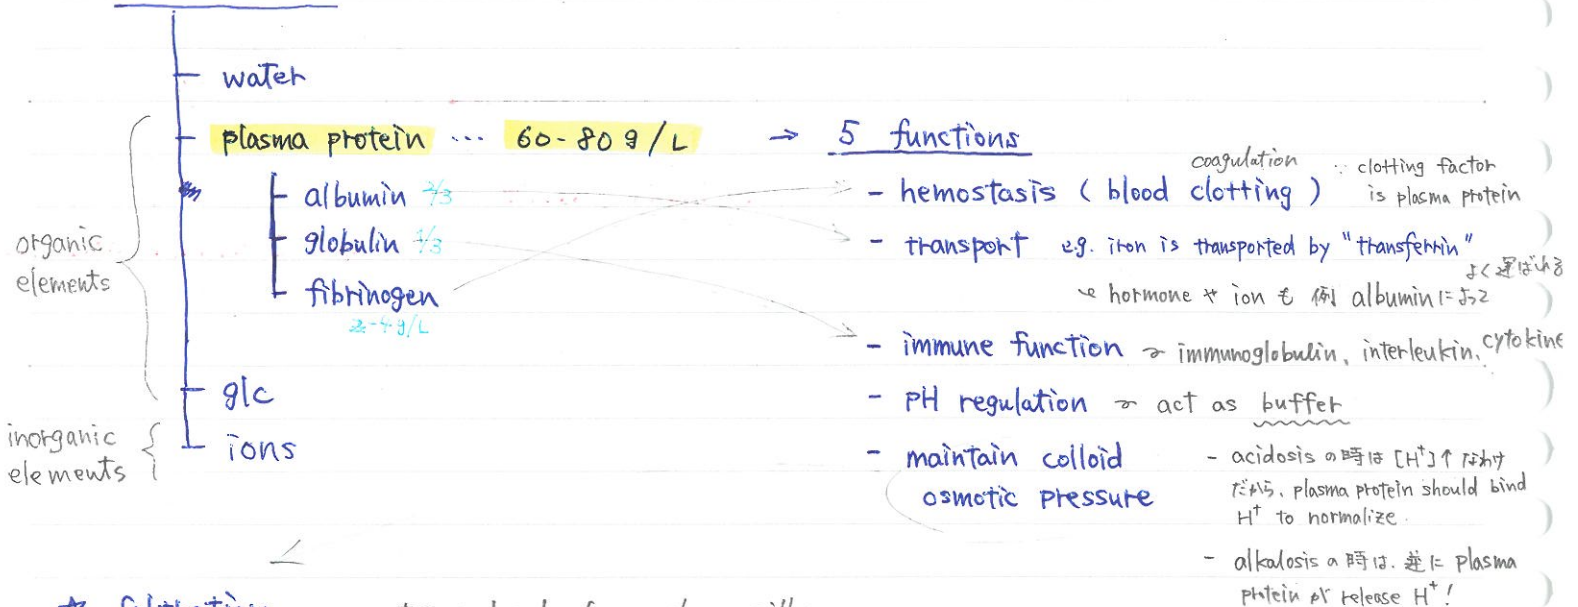 water
plasma protein … 60-80 g/L → 5 functions
albumin 2/3
globulin 1/3
fibrinogen
2-4 g/L
glc
ions
organic
elements
inorganic
elements
coagulation
- hemostasis ( blood clotting ) ∵ clotting factor
is plasma protein
- transport e.g. iron is transported by "transferrin"
よく運ばれる
hormone や ion も 例 albumin によって
- immune function ~ immunoglobulin, interleukin, cytokine
- PH regulation ~ act as buffer
- maintain colloid
osmotic pressure
- acidosis の時は [H⁺]↑ なわけ
だから、plasma protein should bind
H⁺ to normalize.
- alkalosis の時は、逆に plasma
protein が release H⁺!